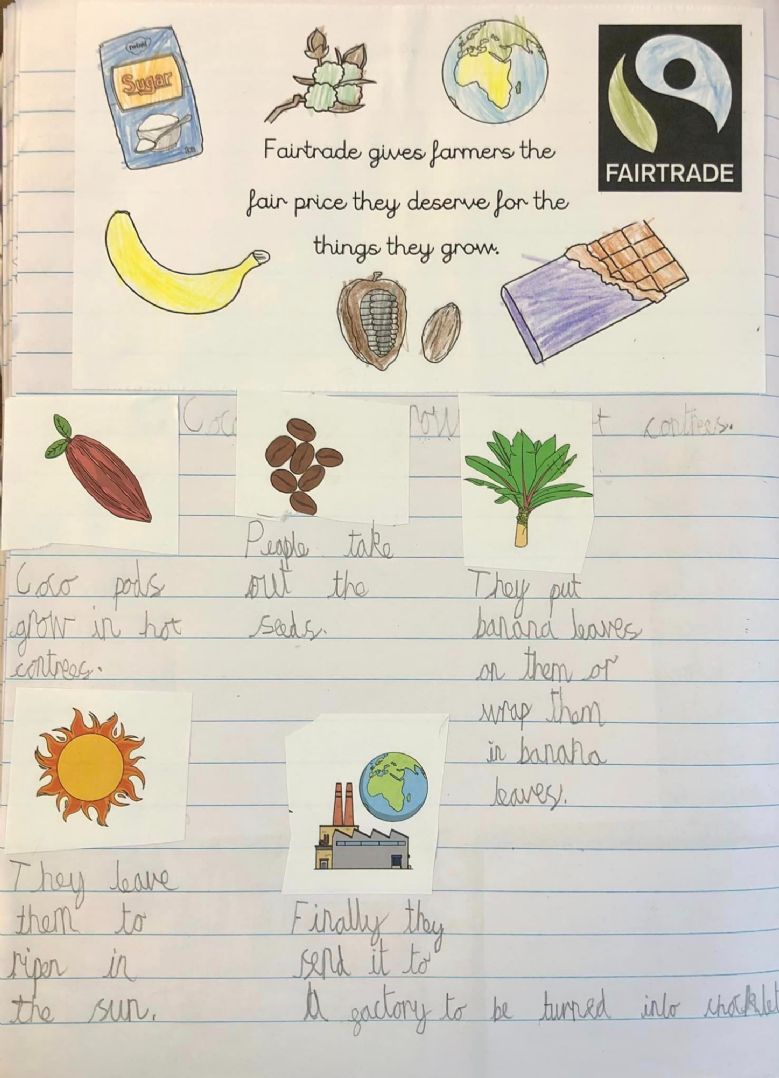 Sugar
Fairtrade gives farmers the
fair price they deserve for the
things they grow.
FAIRTRADE
Coco
contrees.
Coco pods
grow in hot
contrees.
People take
out the
seeds.
They put
banana leaves
on them or
wrap them
in banana
leaves.
They leave
them to
ripen in
the sun.
Finally they
send it to
a factory to be turned into chocklet